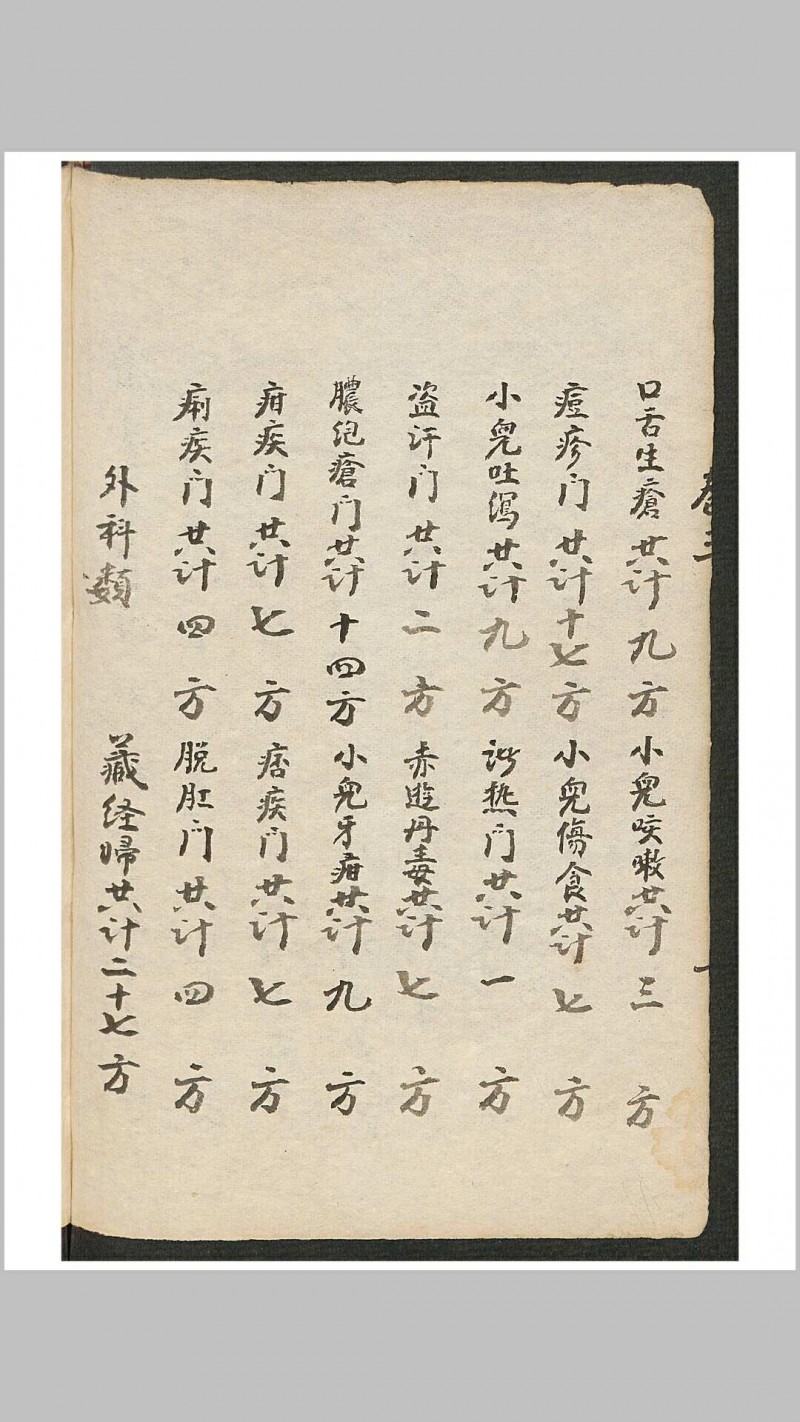 卷三
一
口舌生瘡共计九方 小兒咳嗽共计三方
痘疹门共计十七方 小兒傷食共计七方
小兒吐瀉共计九方 諸热门共计一方
盗汗门共计二方 赤遊丹毒共计七方
膿皰瘡门共计十四方 小兒牙疳共计九方
疳疾门共计七方 痞疾门共计七方
痢疾门共计四方 脱肛门共计四方
外科類 藏经婦共计二十七方